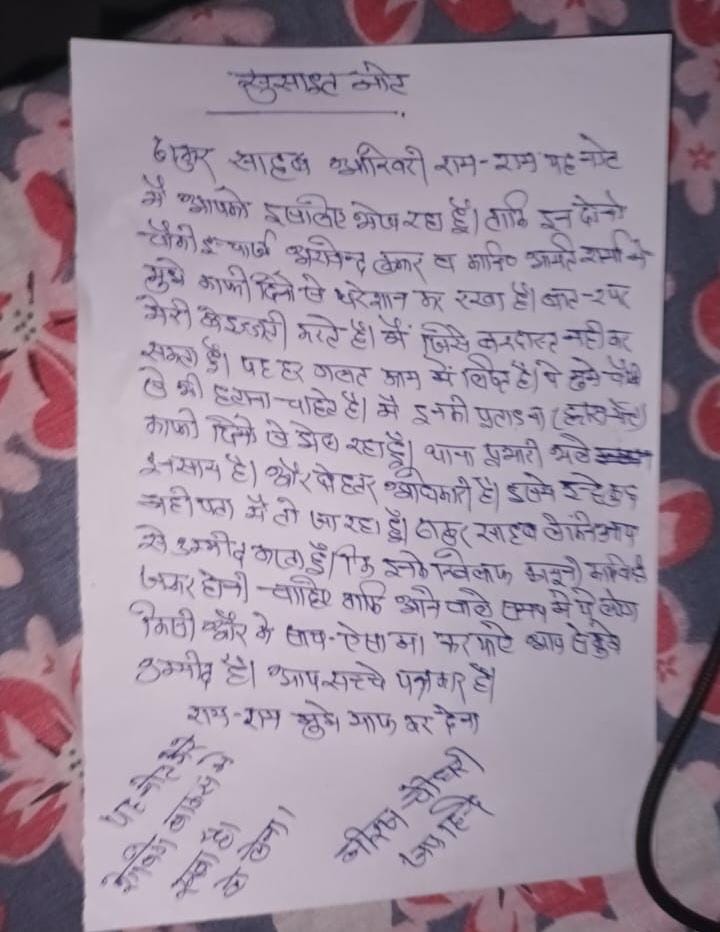 सुसाइट नोट
ठाकुर साहब आखिरी राम-राम यह नोट
मैं आपको इसलिए भेज रहा हूँ। ताकि इन दोनो
चौकी इन्चार्ज अरविन्द कुमार व
मुझे काफी दिनों से परेशान कर रखा है। बार-२ पर
मेरी बेइज्जती करते है। मैं जिसे बरदास्त नही कर
सकता हूँ। यह हर गलत काम में लिप्त है। ये मुझे चौकी
से भी हटाना चाहते है। मैं इनकी प्रताडना
काफी दिनों से झेल रहा हूँ। थाना प्रभारी भले
इनसान है। और बेहतर अधिकारी है। इसमें इन्हे कुछ
नही पता मैं तो जा रहा हूँ। ठाकुर साहब लेकिन आप
से उम्मीद करता हूँ। कि इनके खिलाफ कानूनी कार्यवाही
जरूर होनी चाहिए ताकि आने वाले समय में ये लोग
किसी और के साथ ऐसा ना कर पाऐ आप से मुझे
उम्मीद है। आप सच्चे पत्रकार है।
राम-राम मुझे माफ कर देना
यह नोट मेरे
रखा है।
ले लेना।
चौधरी
जय हिन्द